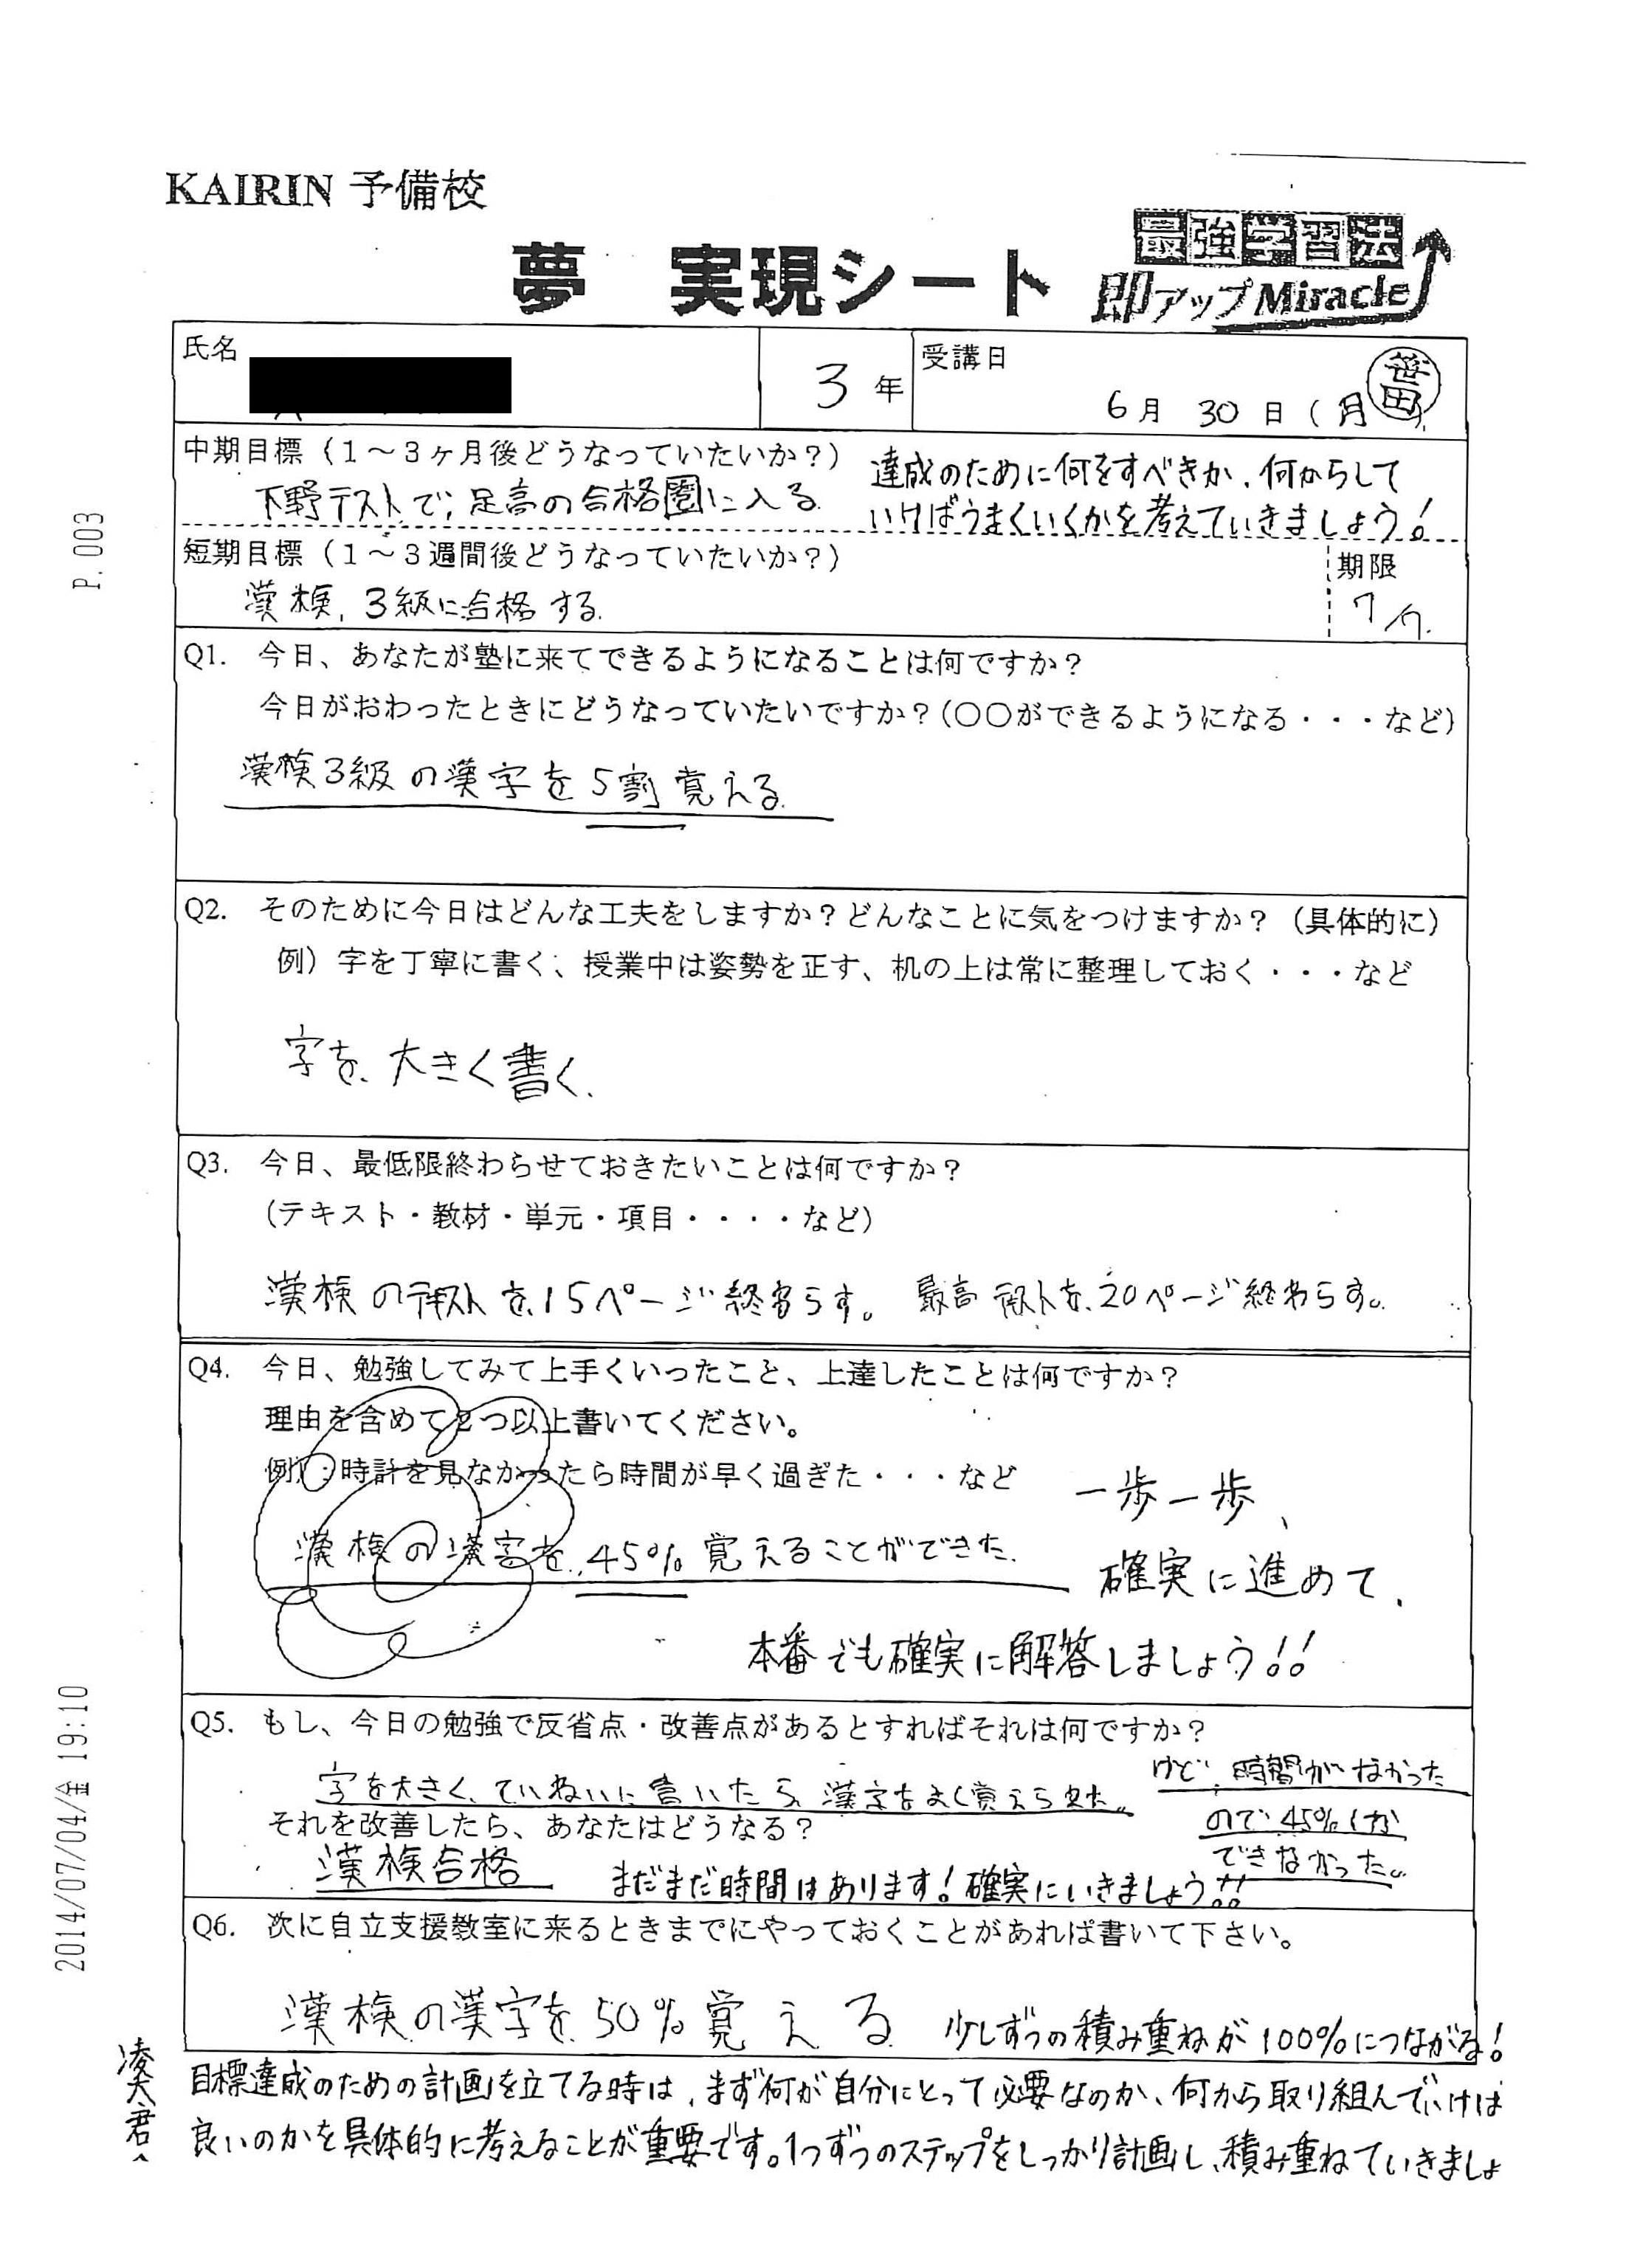 KAIRIN 予備校
夢 実現シート
最強学習法
即アップMiracle
氏名
3 年
受講日
6月 30日(月)
笹田
中期目標（1～3ヶ月後どうなっていたいか？）
下野テストで、足高の合格圏に入る
達成のために何をすべきか、何からして
いけばうまくいくかを考えていきましょう！
短期目標（1～3週間後どうなっていたいか？）
漢検、3級に合格する
期限
Q1. 今日、あなたが塾に来てできるようになることは何ですか？
今日がおわったときにどうなっていたいですか？（〇〇ができるようになる・・・など）
漢検3級の漢字を5割覚える
Q2. そのために今日はどんな工夫をしますか？どんなことに気をつけますか？（具体的に）
例）字を丁寧に書く、授業中は姿勢を正す、机の上は常に整理しておく・・・など
字を、大きく書く、
Q3. 今日、最低限終わらせておきたいことは何ですか？
（テキスト・教材・単元・項目・・・・など）
漢検のテキストを、15ページ終わらす。 最高 テキストを、20ページ終わらす。
Q4. 今日、勉強してみて上手くいったこと、上達したことは何ですか？
理由を含めて2つ以上書いてください。
例）：時計を見なかったら時間が早く過ぎた・・・など
漢検の漢字を、45%覚えることができた
一歩一歩、
確実に進めて、
本番でも確実に解答しましょう!!
Q5. もし、今日の勉強で反省点・改善点があるとすればそれは何ですか？
字を大きく、ていねいに書いたら、漢字をよく覚えられた。
けど、時間がなかった
ので45%しか
できなかった。
それを改善したら、あなたはどうなる？
漢検合格
まだまだ時間はあります！確実にいきましょう!!
Q6. 次に自立支援教室に来るときまでにやっておくことがあれば書いて下さい。
漢検の漢字を50%覚える
少しずつの積み重ねが100%につながる！
凌大君へ
目標達成のための計画を立てる時は、まず何が自分にとって必要なのか、何から取り組んでいけば
良いのかを具体的に考えることが重要です。1つずつのステップをしっかり計画し、積み重ねていきましょ
P.003
2014/07/04/金 19:10